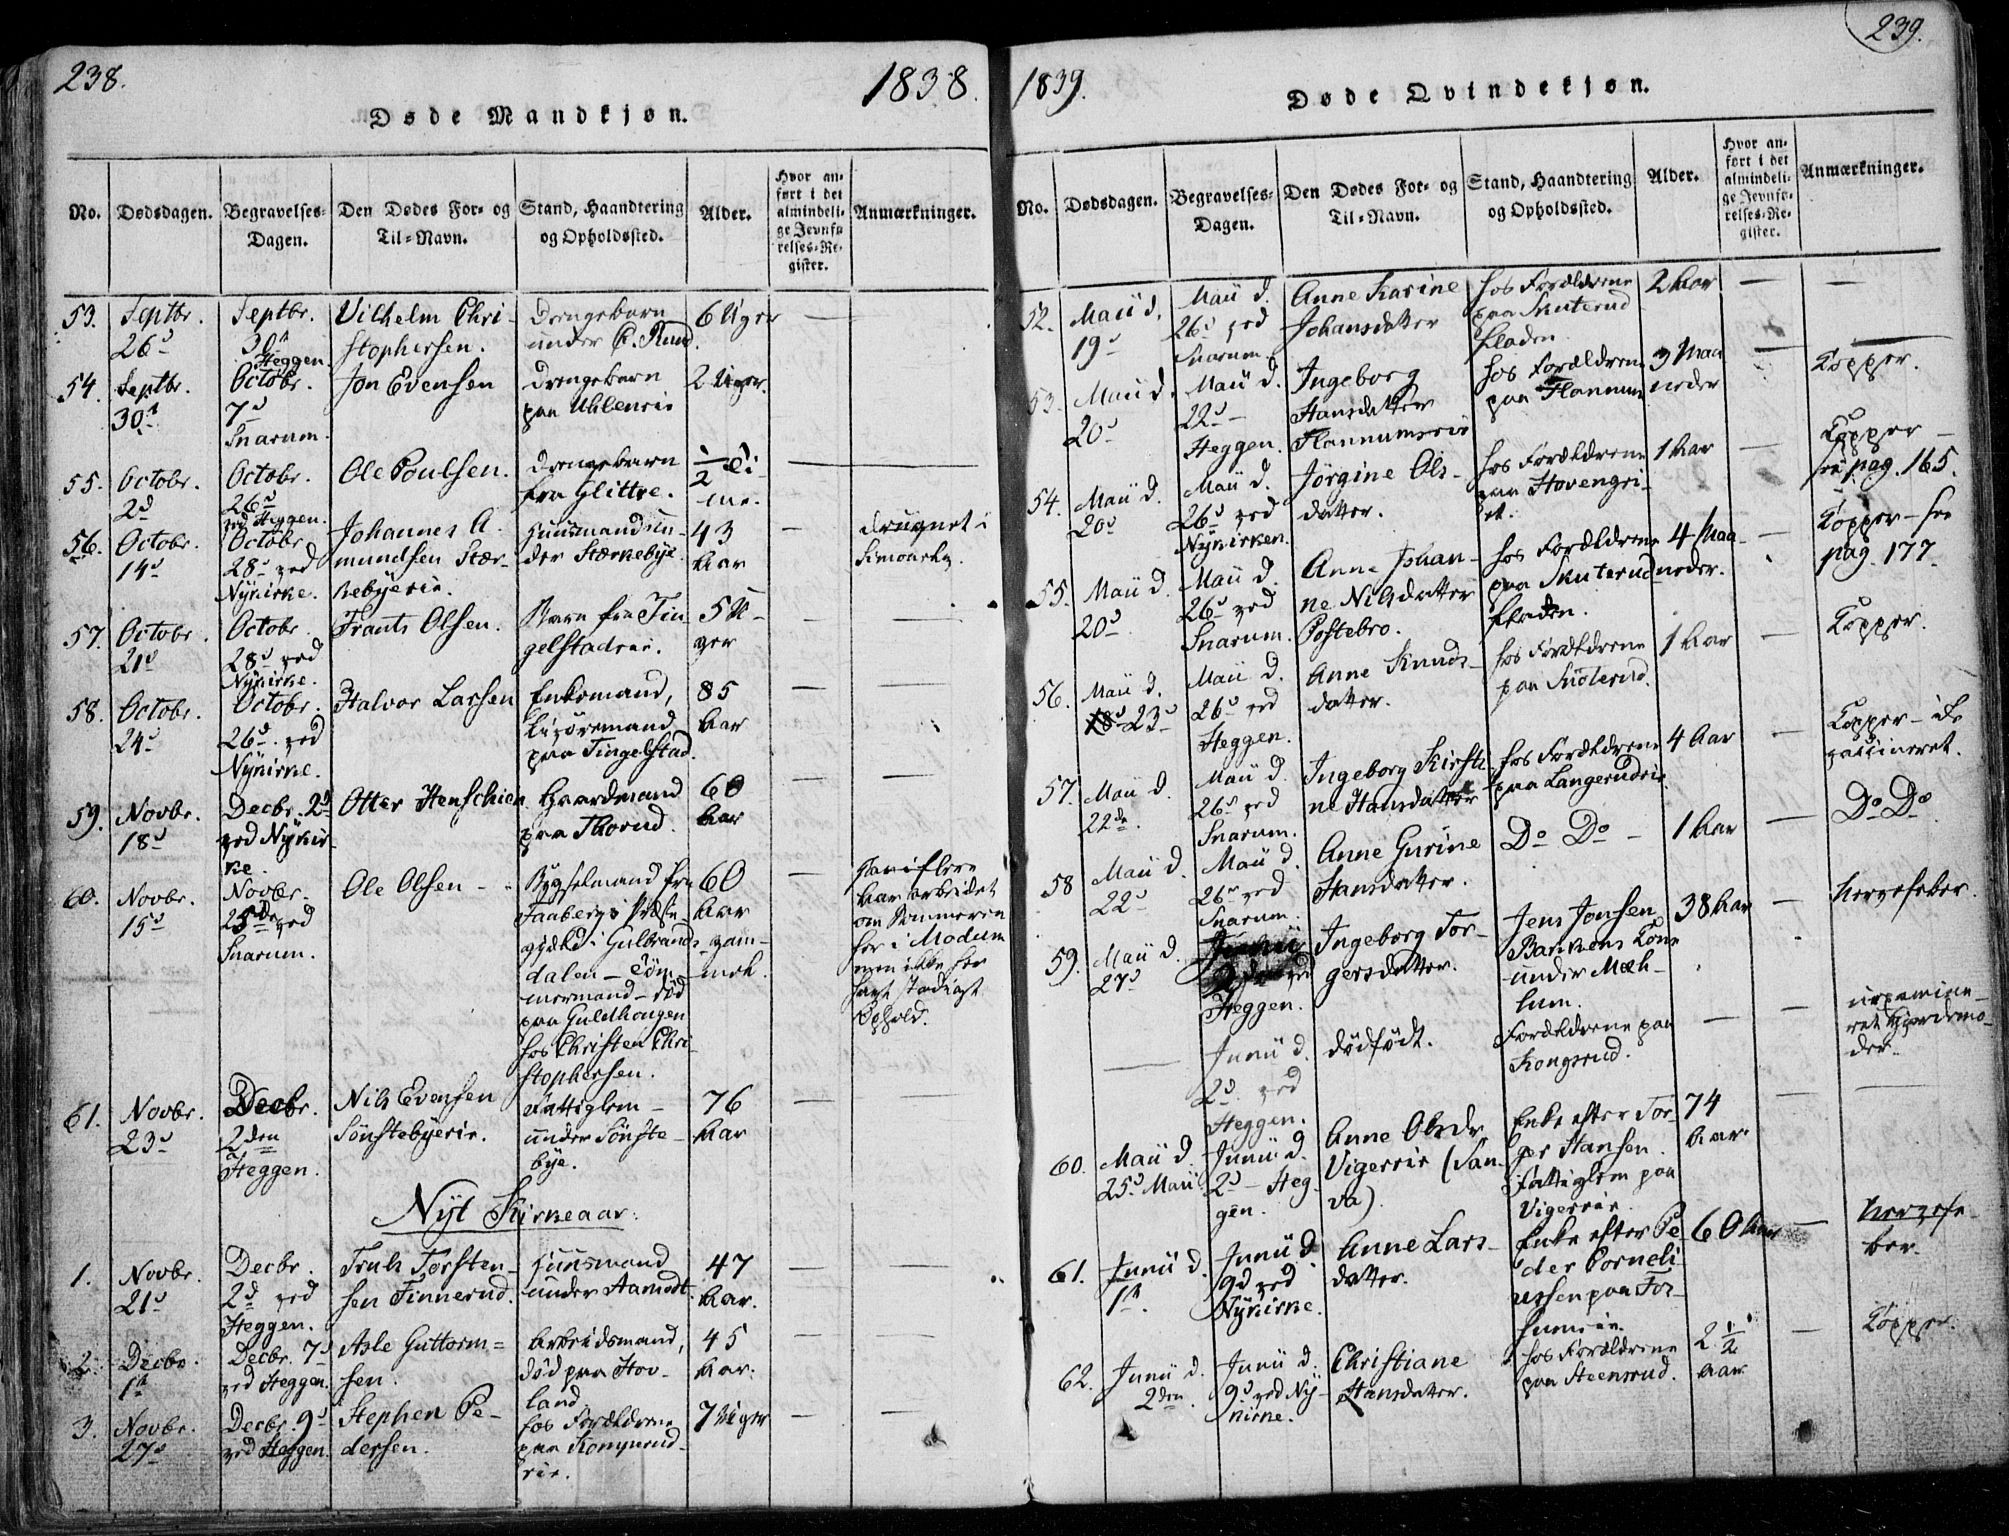 238.
1838.
Døde Mandkjøn.
No.
Dødsdagen.
Begravelses-
Dagen.
Den Dødes For- og
Til-Navn.
Stand, Haandtering
og Opholdssted.
Alder.
Hvor an-
ført i det
almindeli-
ge Jevnfø-
relses-Re-
gister.
Anmærkninger.
53.
Septbr.
26d
Septbr.
30d
Heggen.
Vilhelm Chri-
stophersen.
Drengebarn
under C. Rud.
6 Uger
54.
Septbr.
30d
Octobr.
7d
Snarum.
Jon Evensen
Drengebarn
paa Uhleneie
2 Uger.
55.
Octobr.
2d
Octobr.
26d
ved Heggen.
Ole Poulsen.
Drengebarn
fra Glittre.
1/2 Ti-
me.
56.
Octobr.
14d
Octobr
28d ved
Nykirke.
Johannes A-
mundsen Stær-
kebyeeie.
Huusmand un-
der Stærkebye.
43
Aar
druknet i
Simoaelv.
57.
Octobr.
21d
Octobr
28d ved
Nykirke.
Frants Olsen.
Barn fra Tin-
gelstadeie.
5 U-
ger
58.
Octobr.
24d
Octobr.
26d. ved
Nykirke.
Halvor Larsen
Enkemand,
Livøremand
paa Tingelstad.
85
Aar
59.
Novbr.
18d
Decbr. 2d
ved Nykir-
ke.
Otter Henschien
Gaardmand
paa Thorud.
60
Aar
60.
Novbr.
15d
Novbr.
25de ved
Snarum.
Ole Olsen
Bygselmand fra
Faabergs Præste-
gjæld i Gulbrands-
dalen - Töm-
mermand - död
paa Guldhaugen
hos Christen Chri-
stophersen.
60
Aar
gam-
mel.
har i flere
Aar arbeidet
om Sommeren
her i Modum
men ikke her
havt stadigt
Ophold.
61.
Novbr.
23d
Decbr.
2den
Heggen.
Nils Evensen
Sönstebyeeie.
Fattiglem
under Sönste-
bye.
76
Aar
Nyt Kirkeaar.
1.
Novbr.
21d
Decbr.
2d ved
Heggen.
Truls Torsten-
sen Finnerud.
Huusmand
under Aamodt.
47
Aar.
2.
Decbr.
1ste
Decbr. 7d
ved Heggen.
Asle Guttorm-
sen.
Arbeidsmand,
död paa Hov-
land
45
Aar.
3.
Novbr.
27d
Decbr. 9d
ved Heggen.
Stephen Pe-
dersen.
hos Forældrene
paa Kongsrud-
eie.
7 Uger
239.
1839.
Døde Qvindekjøn.
No.
Dødsdagen.
Begravelses-
Dagen.
Den Dødes For- og
Til-Navn.
Stand, Haandtering
og Opholdssted.
Alder.
Hvor an-
ført i det
almindeli-
ge Jevnfø-
relses-Re-
gister.
Anmærkninger.
52.
Maii d.
19d
Maii d.
26d ved
Snarum.
Anne Karine
Johansdatter
hos Forældrene
paa Skuterud
fladen.
2 Aar
53.
Maii d.
20d
Maii d.
22d
Heggen.
Ingeborg
Hansdatter
Flannumseie
hos Forældrene
paa Flannum
3 Maa
neder
Kopper.
54.
Maii d.
20d
Maii d.
26d ved
Nykirken.
Jörgine Ols-
datter.
hos Forældrene
paa Hovengei-
et.
1 Aar
Kopper -
see pag. 165.
55.
Maii d.
20d
Maii d.
26d ved
Snarum.
Anne Johan-
ne Nilsdatter
Postebro.
hos Forældrene
paa Skuterud
fladen.
4 Maa-
neder.
Kopper - see
pag. 177.
56.
Maii d.
23d
Maii d.
26d ved
Heggen.
Anne Knuds-
datter.
hos Forældrene
1 Aar
Kopper.
57.
Maii d.
22de.
Maii d.
26d ved
Snarum.
Ingeborg Kirsti-
ne Hansdatter
hos Forældrene
paa Langerudeie
4 Aar
Kopper - ikke
vaccineret.
58
Maii d.
22d
Maii d.
26d ved
Snarum.
Anne Gurine
Hansdatter.
Do Do -
1 Aar
Do Do
59.
Maii d.
27d
Junii
2den ved
Heggen.
Ingeborg Tor-
gersdatter.
Jens Jonsen
Bakkens Kone
under Mæh-
lum.
38 Aar
Nervefeber.
Junii d.
2d ved
Heggen.
dödfödt.
Forældrene paa
Kongsrud.
uexamine-
ret Gjordemo-
der.
60.
Maii d.
25d Maii
Junii d.
2d - Heg-
gen.
Anne Olsdr
Vigerseie (San-
da).
Enke efter Tor-
ger Hansen
Fattiglem paa
Vigerseie
74
Aar
61.
Junii d.
1ste.
Junii d.
9d ved
Nykirke.
Anne Lars-
datter.
Enke efter Pe-
der Corneli-
ussen paa For-
sumeie.
60 Aar
Nervefe-
ber.
62.
Junii d.
2den.
Junii d.
9d ved Ny-
kirke.
Christiane
Hansdatter.
hos Forældrene
paa Steensrud.
2 1/2
Aar
Kopper.